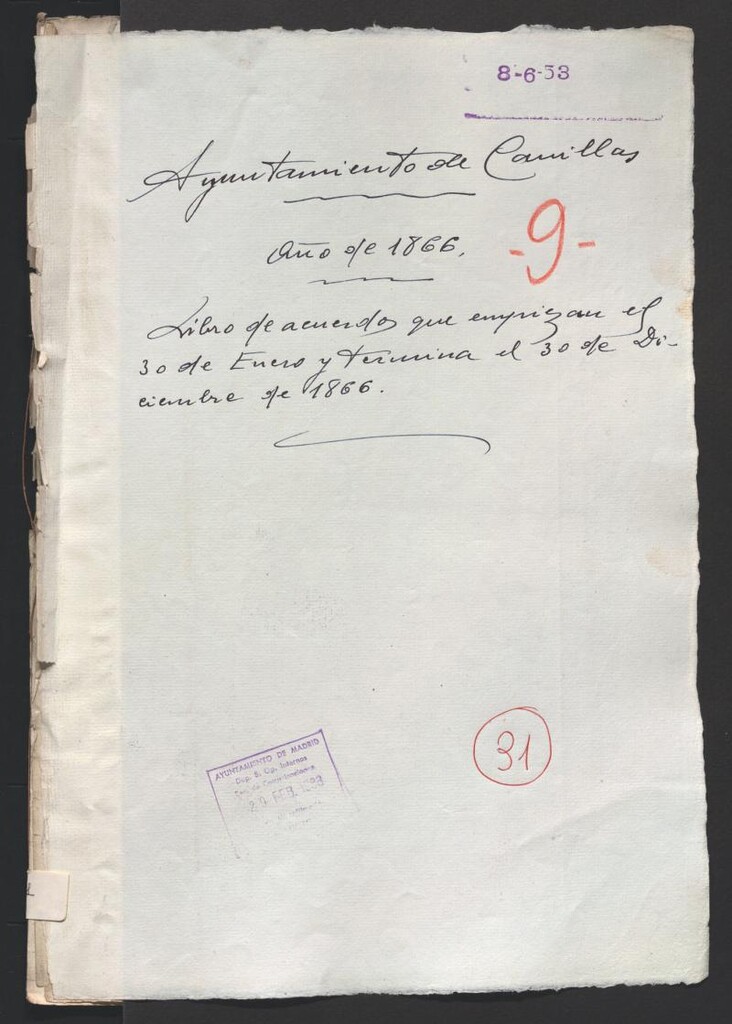 8-6-53
Ayuntamiento de Canillas
Año de 1866.
-9-
Libro de acuerdos que empiezan el
30 de Enero y termina el 30 de Di-
ciembre de 1866.
31
AYUNTAMIENTO DE MADRID
Dep. B. Cp. Internos
20 FEB.